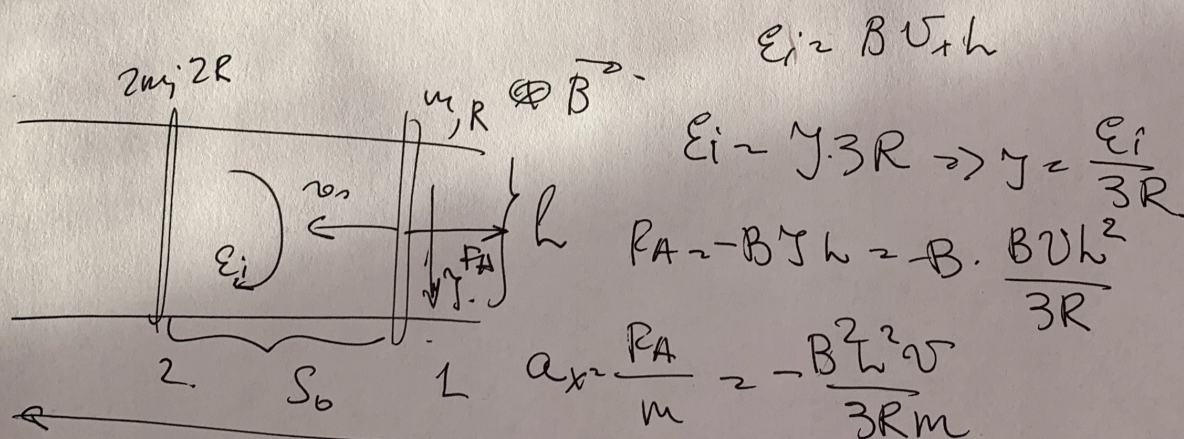 ℰi = B v₊ h
2m; 2R
m, R ⊗ B⃗
ℰi = J·3R => J = ℰi / 3R
v₁
ℰi
FA
J
h
FA = -BJh = -B · Bvh² / 3R
2. S₀ 1
ax = FA / m = - B²h²v / 3Rm